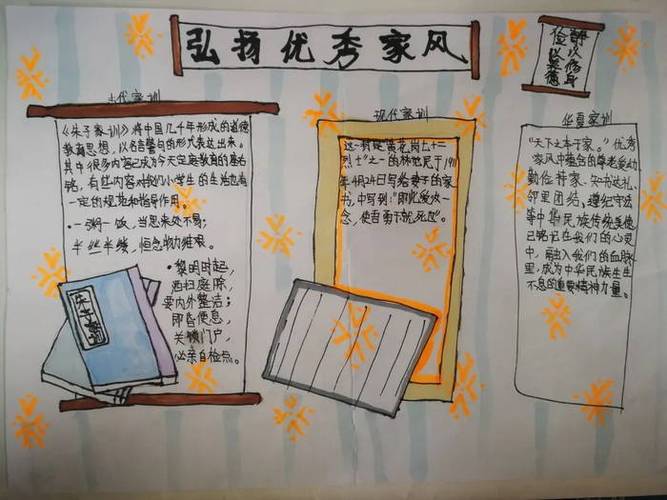 弘扬优秀家风
静以修身
俭以养德
古代家训
《朱子家训》将中国几千年形成的道德
教育思想，以名言警句的形式表达出来。
其中很多内容已成为今天家庭教育的座右
铭，有些内容对我们小学生的生活也有
一定的规范和指导作用。
·一粥一饭，当思来处不易；
半丝半缕，恒念物力维艰。
·黎明即起，
洒扫庭除，
要内外整洁；
即昏便息，
关锁门户，
必亲自检点。
朱子家训
现代家训
这一封是黄花岗七十二
烈士"之一的林觉民于1911
年4月24日写给妻子的家
书，中写到："即此爱汝一
念，使吾勇于就死也"。
华夏家训
"天下之本于家。"优秀
家风中蕴含的尊老爱幼
勤俭持家、知书达礼、
邻里团结、遵纪守法
等中华民族传统美德
已铭记在我们的心灵
中，融入我们的血脉
里，成为中华民族生生
不息的重要精神力量。